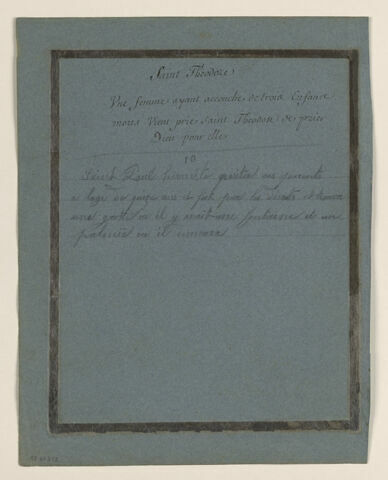 Saint Théodore
Une femme ayant accouché de trois Enfans
morts Vient prié Saint Théodose de prier
Dieu pour elle
10
Saint Paul hermite quitta ses parents
a l'age de quinze ans et fuit dans les deserts et trouva
une grotte ou il y avait une fontaine et un
palmier ou il